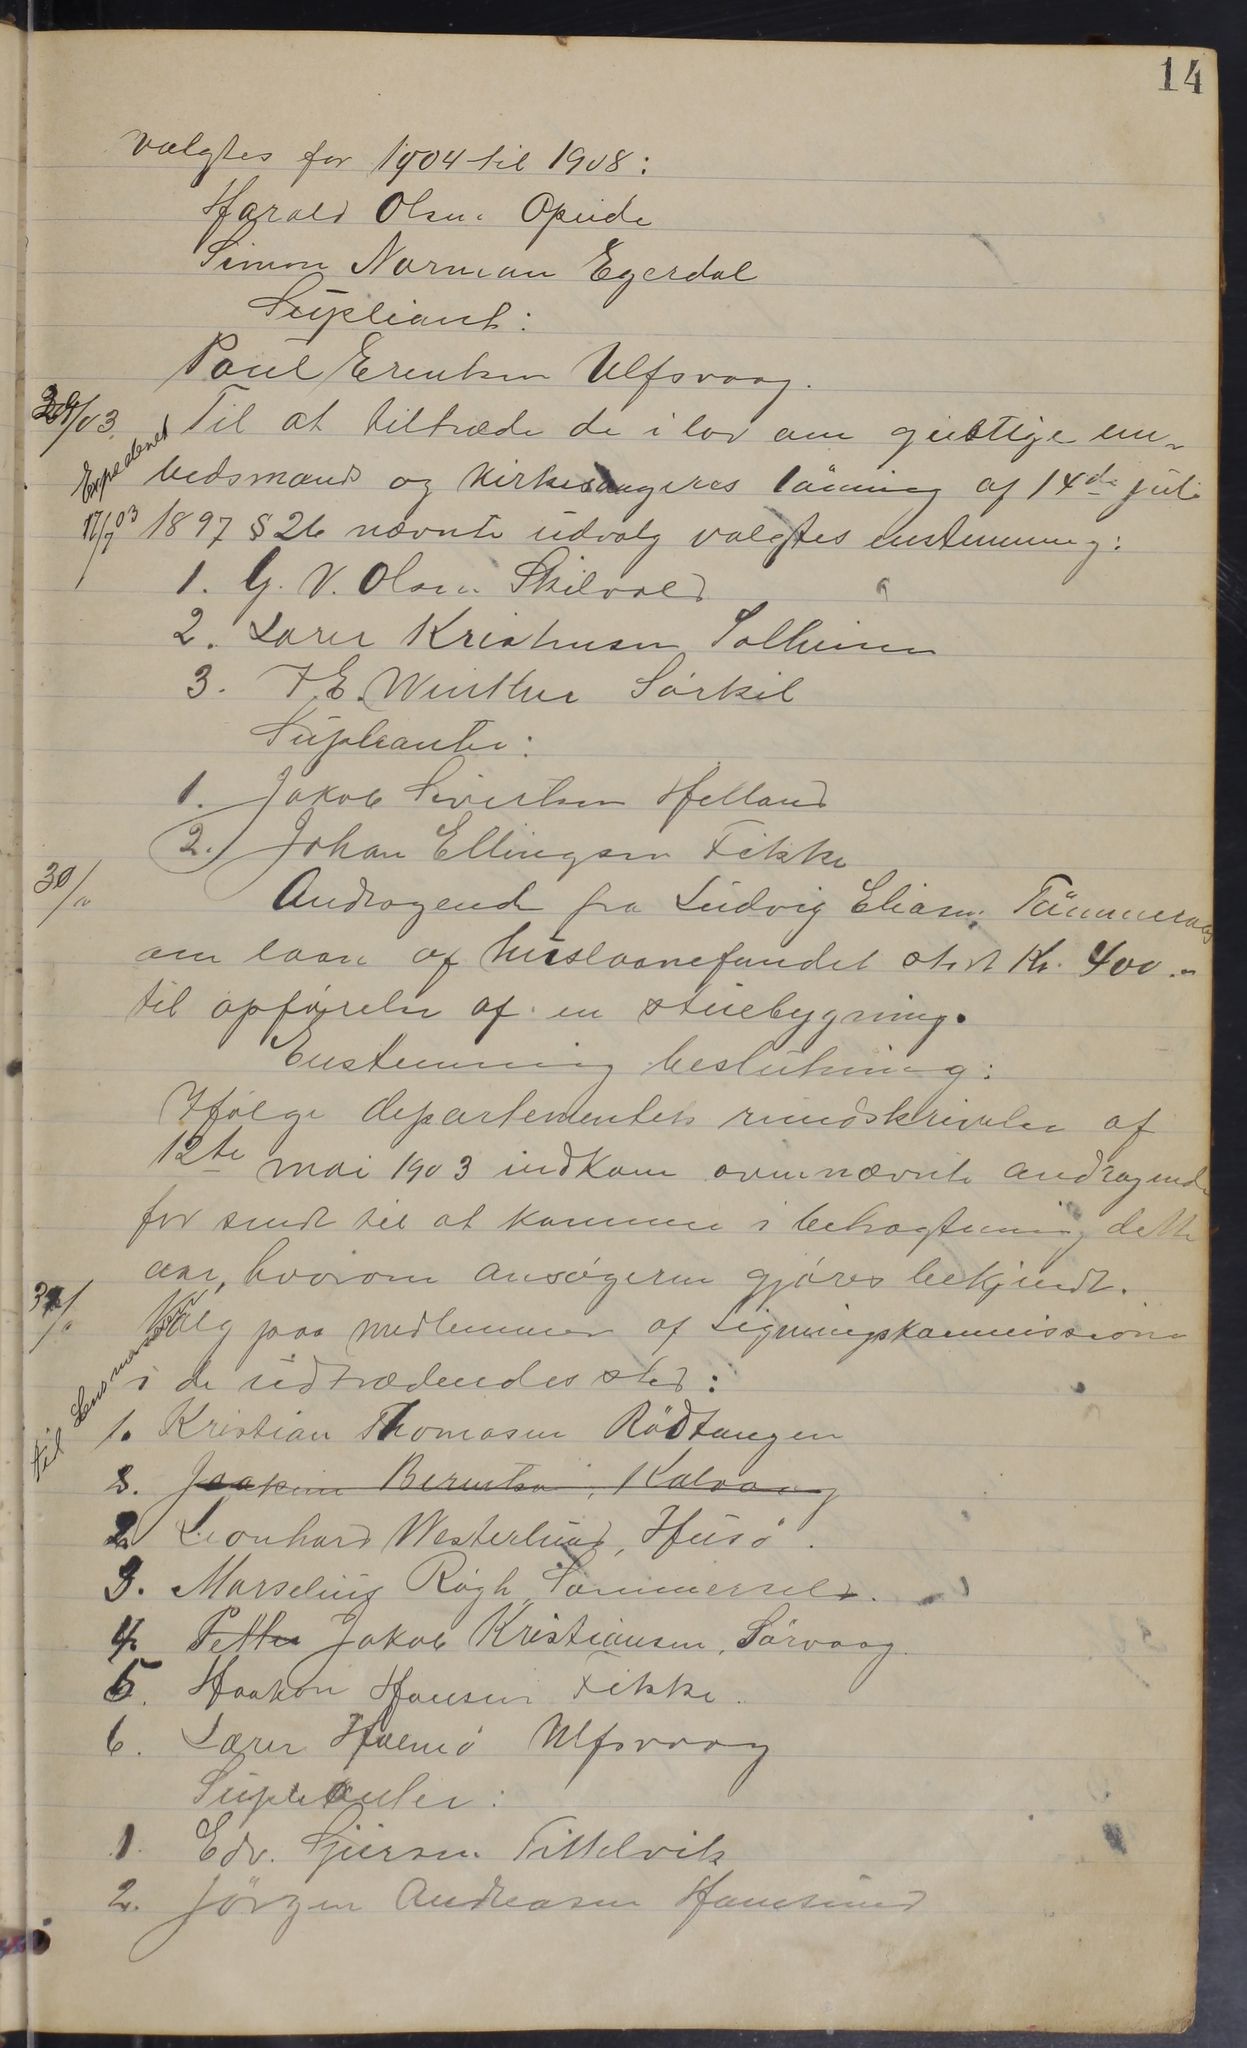 14
valgtes for 1904 til 1908:
Harald Olsen Opeide
Simon Norman Egerdal
Supliant:
Paul Erentsen Ulfsvaag.
29/03. Til at tiltræde de i lov om geistlige em-
Expederet
bedsmænds og kirkesangeres lönning af 14de juli
17/7 03
1897 § 26 nævnte udvalg valgtes enstemmig:
1. G. V. Olsen Skilvold
2. Lærer Kristensen Solheim
3. J E. Winther Sörkil
Suplianter:
1. Jakob Sivertsen Helland
2. Johan Ellingsen Fikke
30/
Andragende fra Ludvig Eliasen Tömmeraas
om laan af huslaanefondet stort Kr. 400.-
til opförelse af en stuebygning.
Enstemmig beslutning:
Ifölge departementets rundskrivelse af
12te mai 1903 indkom ovennævnte andragende
for sendt til at komme i betragtning dette
aar, hvorom ansögeren gjöres bekjendt.
31/
Valg paa medlemmer af Ligningskommissionen
til Lensmanden
i de udtrædendes sted:
1. Kristian Thomasen Rödtangen
3. Joakim Berntsen, Kalvaag
2. Leonhard Westerlund, Husö.
3. Marselius Rögh, Sommersel.
4. Petter Jakob Kristiansen, Sörvaag.
5. Haakon Hansen Fikke.
6. Lærer Holmö Ulfsvaag
Suplianter:
1. Edv. Sjursen Fittelvik
2. Jörgen Andreasen Hamsund